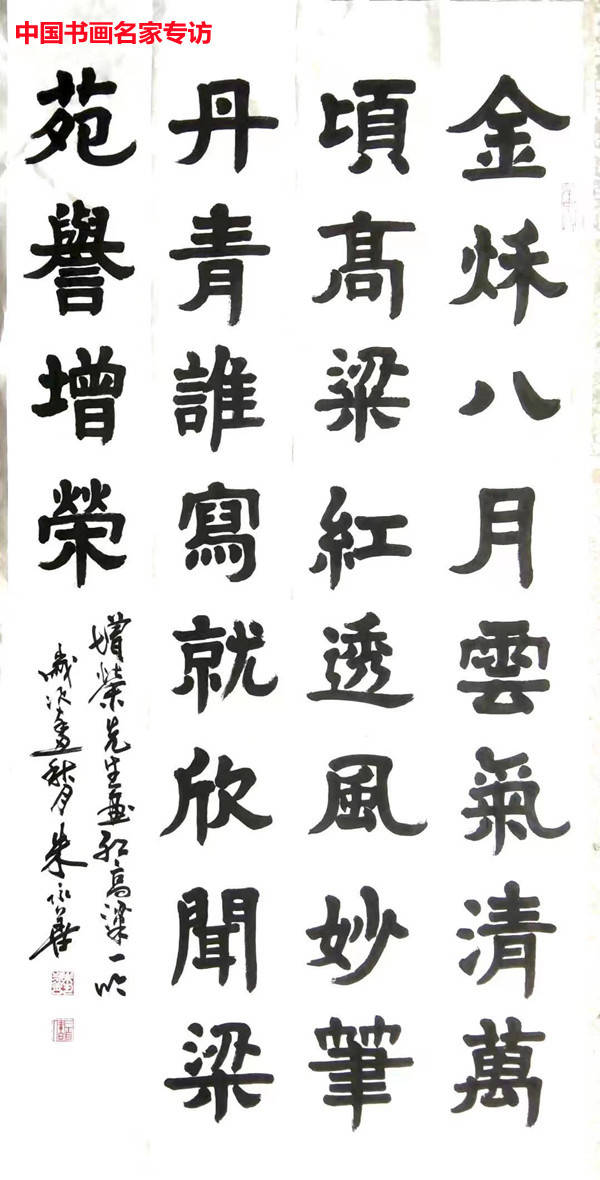 中国书画名家专访
金秌八月雲氣清萬
頃髙粱紅透風妙筆
丹青誰寫就欣聞梁
苑譽增榮
增榮先生畫紅高粱一吟
歲次秋月朱